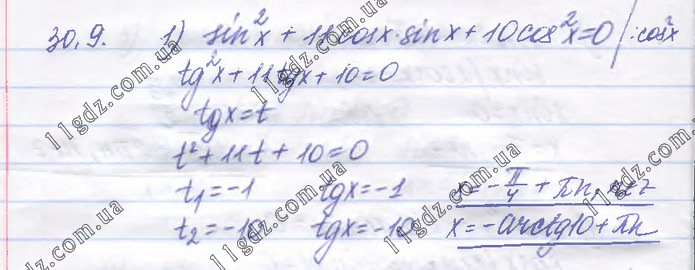 30.9. 1) sin²x + 11cosx·sinx + 10cos²x=0 /:cos²x
tg²x + 11tgx + 10 = 0
tgx = t
t² + 11t + 10 = 0
t₁ = -1 tgx = -1 x = -π/4 + πn, n∈z
t₂ = -10 tgx = -10 x = -arctg10 + πn
11gdz.com.ua
11gdz.com.ua
11gdz.com.ua
11gdz.com.ua
11gdz.com.ua
11gdz.com.ua